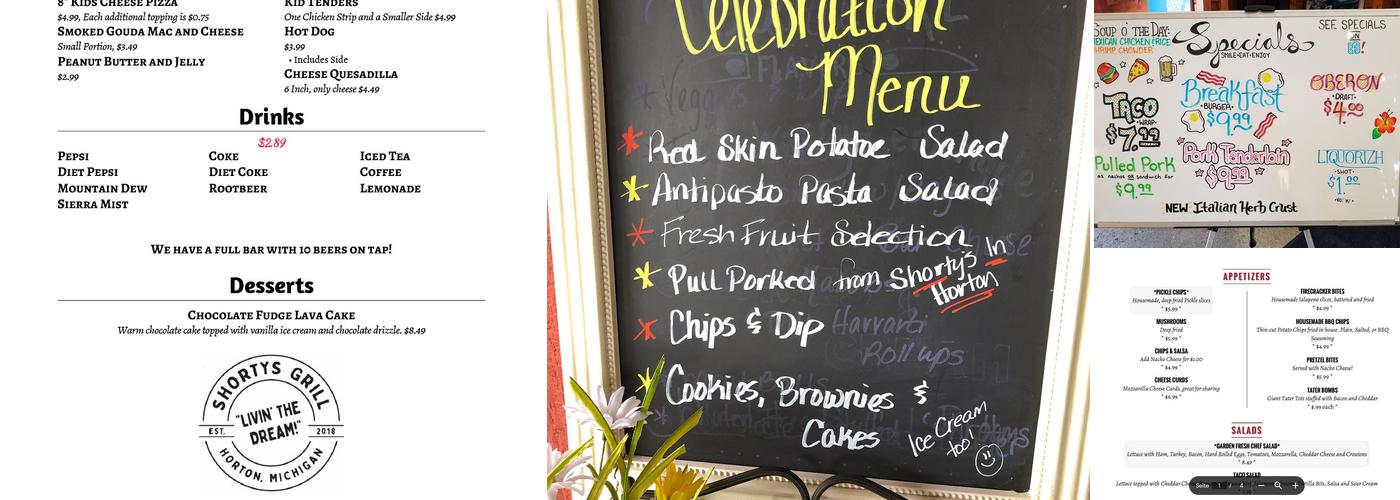 8" Kids Cheese Pizza
$4.99, Each additional topping is $0.75
Smoked Gouda Mac and Cheese
Small Portion, $3.49
Peanut Butter and Jelly
$2.99
Kid Tenders
One Chicken Strip and a Smaller Side $4.99
Hot Dog
$3.99
• Includes Side
Cheese Quesadilla
6 Inch, only cheese $4.49
Drinks
$2.89
Pepsi
Diet Pepsi
Mountain Dew
Sierra Mist
Coke
Diet Coke
Rootbeer
Iced Tea
Coffee
Lemonade
We have a full bar with 10 beers on tap!
Desserts
Chocolate Fudge Lava Cake
Warm chocolate cake topped with vanilla ice cream and chocolate drizzle. $8.49
SHORTYS GRILL
"LIVIN' THE
DREAM!"
EST. 2018
HORTON, MICHIGAN
Celebration
Menu
* Red Skin Potatoe Salad
* Antipasto Pasta Salad
* Fresh Fruit Selection
* Pull Porked from Shorty's In
Horton
* Chips & Dip
Havarti
Roll ups
* Cookies, Brownies &
Cakes
Ice Cream
too!
SOUP O' THE DAY:
MEXICAN CHICKEN & RICE
SHRIMP CHOWDER
Specials
SMILE·EAT·ENJOY
SEE SPECIALS
ON
TACO
·WRAP·
$7.99
Breakfast
·BURGER·
$9.99
OBERON
·DRAFT·
$4.00
Pulled Pork
as nachos or sandwich for
$9.99
Pork Tenderloin
$9.99
LIQUORIZH
·SHOT·
$1.00
NEW Italian Herb Crust
APPETIZERS
*PICKLE CHIPS*
Housemade, deep fried Pickle slices
* $5.99 *
MUSHROOMS
Deep fried
* $5.99 *
CHIPS & SALSA
Add Nacho Cheese for $1.00
* $4.99 *
CHEESE CURDS
Mozzarella Cheese Curds, great for sharing
* $6.99 *
FIRECRACKER BITES
Housemade Jalapeno slices, battered and fried
* $4.99 *
HOUSEMADE BBQ CHIPS
Thin-cut Potato Chips fried in house. Plain, Salted, or BBQ
Seasoning
* $4.99 *
PRETZEL BITES
Served with Nacho Cheese!
* $5.99 *
TATER BOMBS
Giant Tater Tots stuffed with Bacon and Cheddar
* $.99 each *
SALADS
*GARDEN FRESH CHEF SALAD*
Lettuce with Ham, Turkey, Bacon, Hard Boiled Eggs, Tomatoes, Mozzarella, Cheddar Cheese and Croutons
* 8.49 *
TACO SALAD
Lettuce topped with Cheddar
Bits, Salsa and Sour Cream
Seite 1 / 4